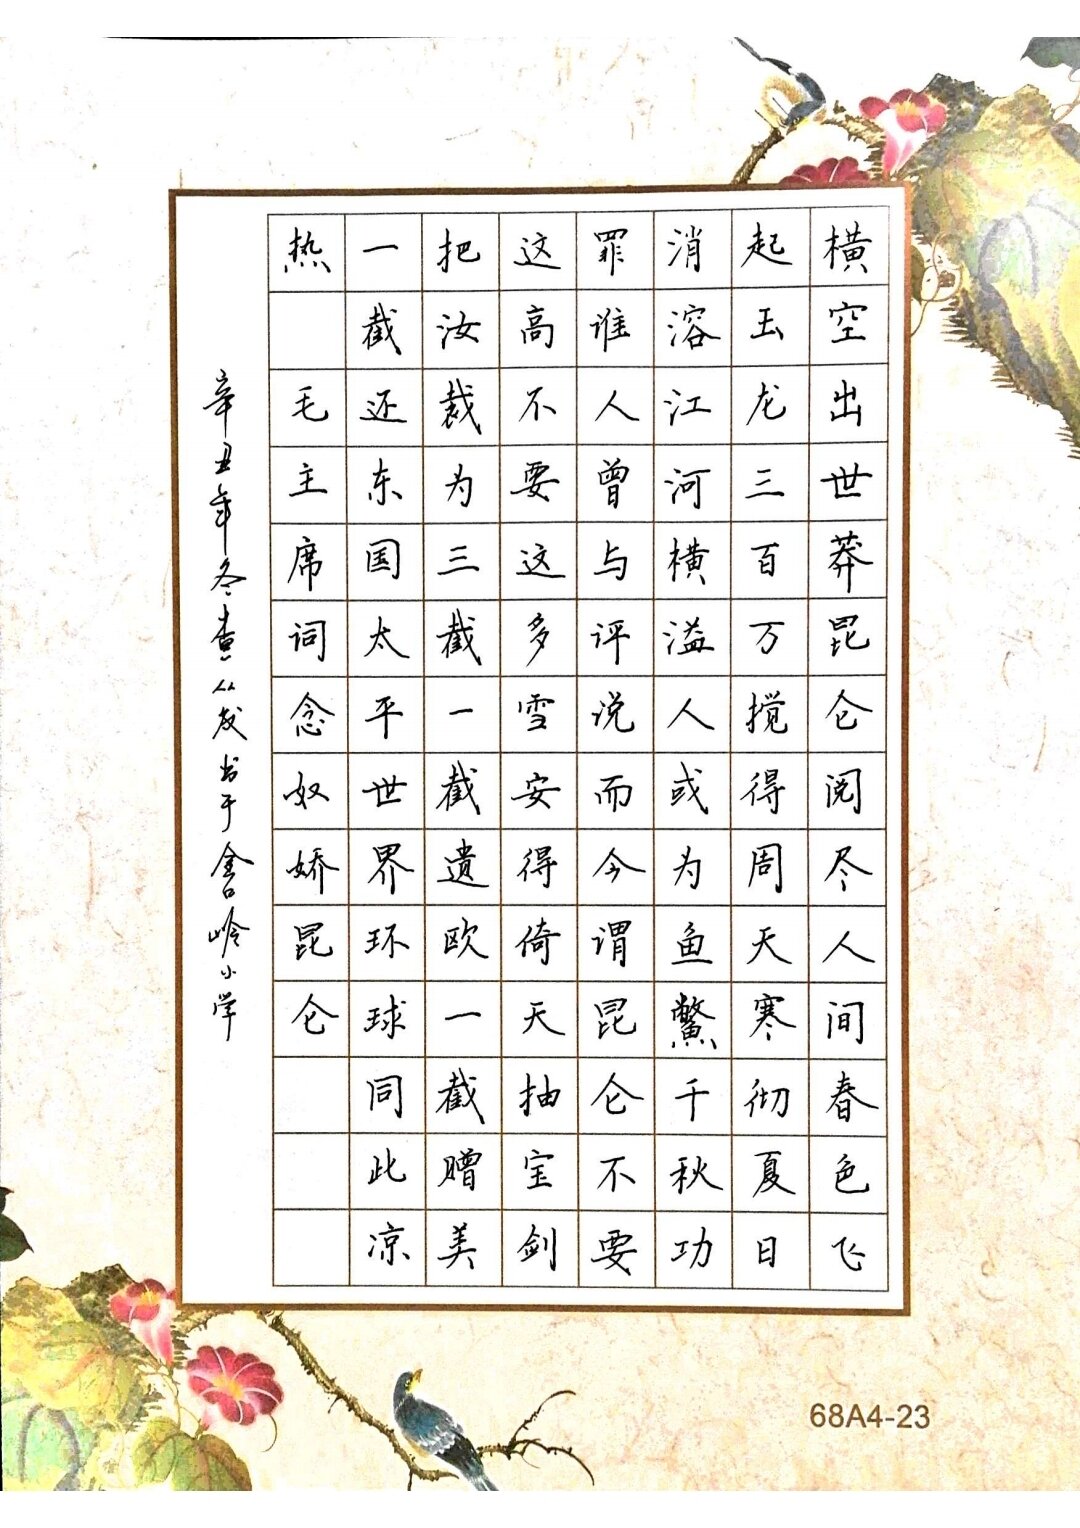 横空出世莽昆仑阅尽人间春色飞
起玉龙三百万搅得周天寒彻夏日
消溶江河横溢人或为鱼鳖千秋功
罪谁人曾与评说而今谓昆仑不要
这高不要这多雪安得倚天抽宝剑
把汝裁为三截一截遗欧一截赠美
一截还东国太平世界环球同此凉
热 毛主席词念奴娇昆仑
辛丑年冬查从发书于舍口岭小学
68A4-23